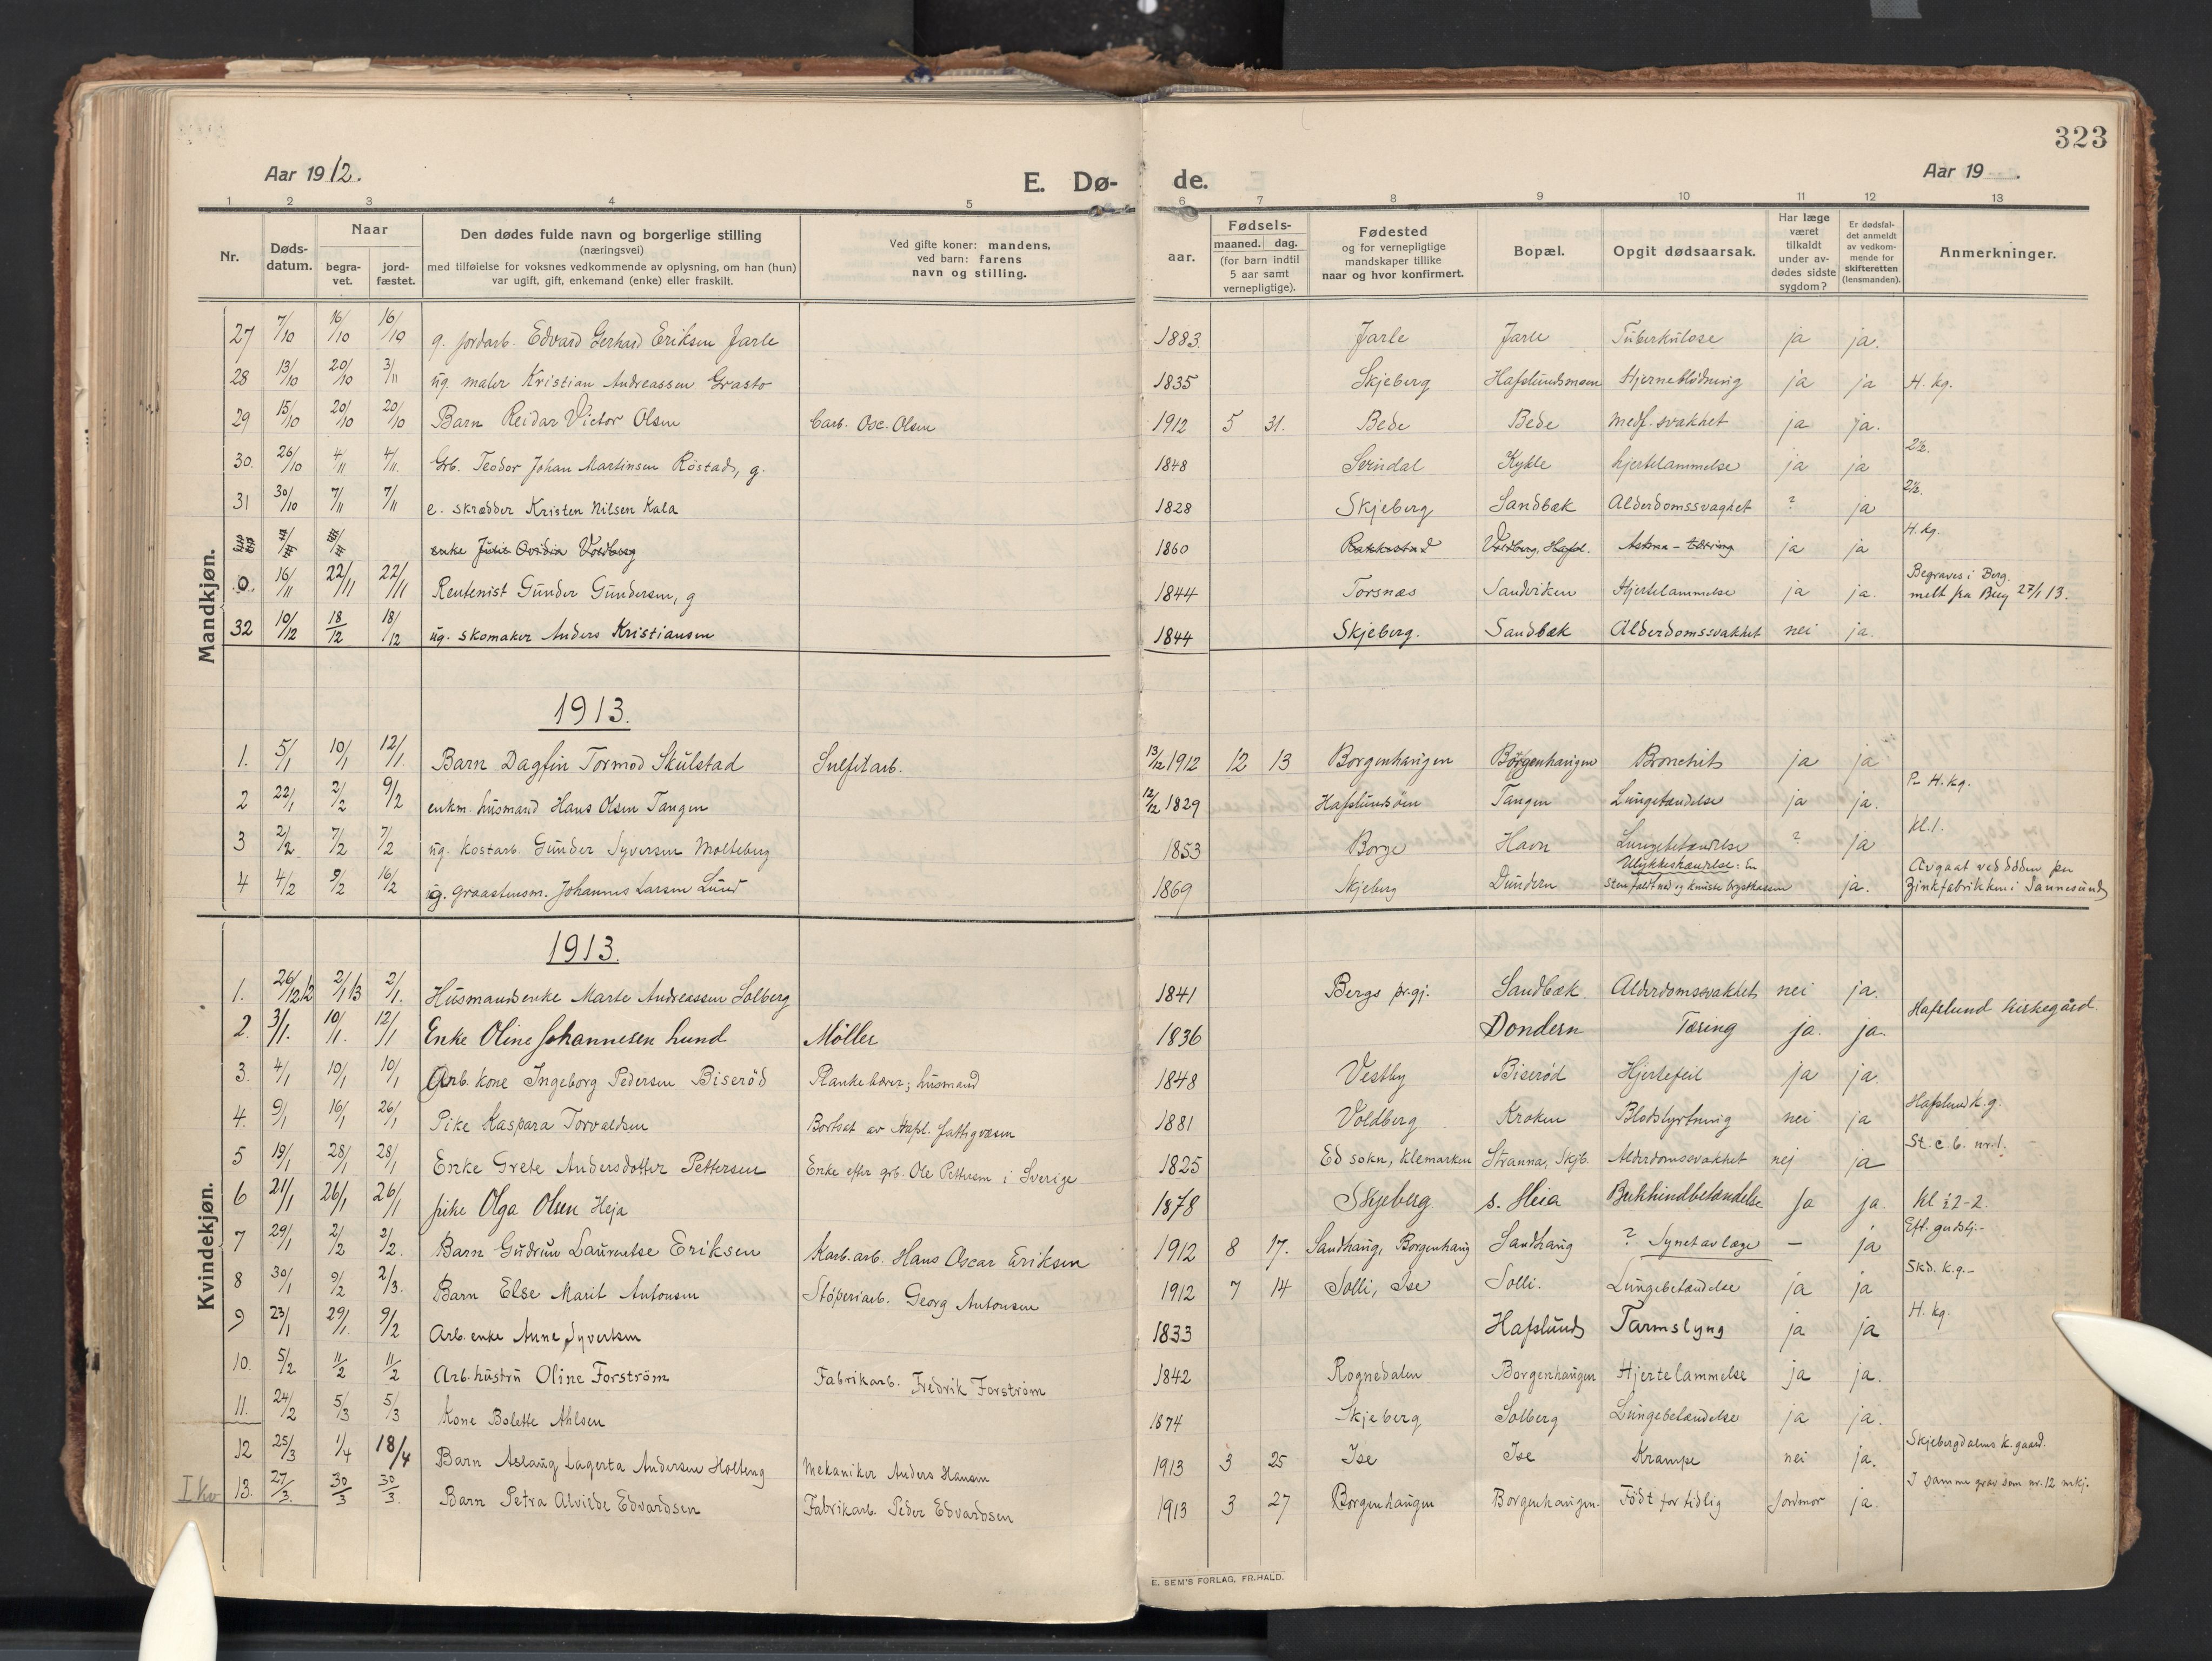 323
Aar 1912.
E. Dø- de.
Aar 19 .
1 2 3 4 5 6 7 8 9 10 11 12 13
Nr.
Døds-
datum.
Naar
begra-
vet.
jord-
fæstet.
Den dødes fulde navn og borgerlige stilling
(næringsvei)
med tilføielse for voksnes vedkommende av oplysning, om han (hun)
var ugift, gift, enkemand (enke) eller fraskilt.
Ved gifte koner: mandens,
ved barn: farens
navn og stilling.
aar.
Fødsels-
maaned. dag.
(for barn indtil
5 aar samt
vernepligtige).
Fødested
og for vernepligtige
mandskaper tillike
naar og hvor konfirmert.
Bopæl.
Opgit dødsaarsak.
Har læge
været
tilkaldt
under av-
dødes sidste
sygdom?
Er dødsfal-
det anmeldt
av vedkom-
mende for
skifteretten
(lensmanden).
Anmerkninger.
Mandkjøn.
27 7/10 16/10 16/10 g. jordarb. Edvard Gerhard Eriksen Jarle 1883 Jarle Jarle Tuberkulose ja ja.
28 13/10 20/10 3/11 ug. maler Kristian Andreassen Grasto 1835 Skjeberg Hafslundsmoen Hjerneblødning ja ja H. kg.
29 15/10 20/10 20/10 Barn Reidar Victor Olsen Carb. Osc. Olsen 1912 5 31. Bede Bede medf. svakhet ja ja.
30. 26/10 4/11 4/11. Grb. Teodor Johan Martinsen Röstad, g. 1848 Kykle hjertelammelse ja ja
31 30/10 7/11 7/11 e. skrædder Kristen Nilsen Kala 1828 Skjeberg Sandbæk Alderdomssvaghet ? ja
enke Julie Ovidia Voldberg 1860 Rakkestad Voldberg, Hafsl. Astma - tæring ja ja H. kg.
0. 16/11 22/11 22/11 Rentenist Gunder Gundersen, g 1844 Torsnæs Sandviken Hjertelammelse ja ja. Begraves i Berg.
melt fra Berg 27/1 13.
32 10/12 18/12 18/12 ug. skomaker Anders Kristiansen 1844 Skjeberg. Sandbæk Alderdomssvakhet nei ja.
1913.
1. 5/1 10/1 12/1. Barn Dagfin Tormod Skulstad Sulfitarb. 13/12 1912 12 13 Borgenhaugen Borgenhaugen Bronchit ja ja
2 22/1 2/2 9/2 enkm. husmand Hans Olsen Tangen 12/12 1829 Hafslundsöen Tangen Lungebetændelse ja ja. P- H. kg.
3 2/2 7/2 7/2 ug. kostarb. Gunder Syversen Molteberg 1853 Borge Havn Lungebetændelse ? ja kl. 1.
4 4/2 9/2 16/2 g. graastensm. Johannes Larsen Lund 1869 Skjeberg Dundern Ulykkeshændelse: En
sten faldt ned og knuste brystkassen ja. Avgaat ved döden paa
Zinkfabrikken i Sannesund
Kvindekjøn.
1913.
1. 26/12 12 2/1 13 2/1. Husmandsenke Marte Andreassen Solberg 1841 Bergs pr.gj. Sandbæk. Alderdomssvakhet nei ja.
2. 3/1. 10/1. 12/1 Enke Oline Johannesen Lund Möller 1836 Dondern Tæring ja. ja. Hafslund kirkegård.
3. 4/1 10/1 10/1 Arb. kone Ingeborg Pedersen Biseröd Plankebærer; husmand 1848 Vestby Biseröd Hjertefeil ja ja
4. 9/1 16/1 26/1 Pike Kaspara Torvaldsen Bortsat av Hafsl. fattigvæsen 1881 Voldberg Kroken Blodstyrtning nei ja Hafslund k.g.
5 19/1 28/1 28/1 Enke Grete Andersdotter Pettersen Enke efter grb. Ole Pettersen i Sverige 1825 Ed sokn, Klemarken Stranna, Skjb. Alderdomssvakhet nej ja St. c. b. nr. 1.
6 21/1 26/1 26/1 pike Olga Olsen Heja 1878 Skjeberg. s. Heia Bukhindbetændelse Ja ja. Kl 12-2
7 29/1 2/2 2/2. Barn Gudrun Laurentse Eriksen Karb.arb. Hans Oscar Eriksen 1912 8 17. Sandhaug, Borgenhaug Sandhaug ? Synet av læge — ja Eft. gudstj.-
8 30/1 9/2 2/3. Barn Else Marit Antonsen Stöperiarb. Georg Antonsen 1912 7 14 Solli, Ise Solli. Lungebetændelse ja ja Skd. k.g.-
9 23/1 29/1. 9/2 Arb. enke Anne Syvertsen 1833 Hafslund Tarmslyng ja ja H. kg.
10. 5/2 11/2 11/2 Arb.hustru Oline Forström Fabrikarb. Fredrik Forström 1842 Rognedalen Borgenhaugen Hjertelammelse ja ja.
11. 24/2 5/3 5/3 Kone Bolette Ahlsen 1874 Skjeberg Solberg Lungebetændelse ja ja.
12 25/3 1/4 18/4 Barn Aslaug Lagerta Andersen Holteng Mekaniker Anders Hansen 1913 3 25 Ise Ise Krampe nei ja. Skjebergdalens k.gaard.
I kv 13. 27/3. 30/3 30/3. Barn Petra Alvilde Edvardsen Fabrikarb. Peder Edvardsen 1913 3 27 Borgenhaugen Borgenhaugen. Födt for tidlig Jordmor ja. I samme grav som nr. 12 mkj.
E. SEM'S FORLAG, FR.HALD.